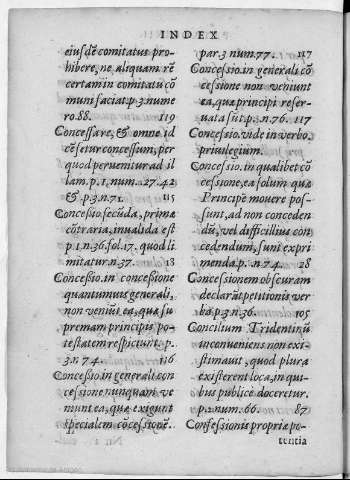 INDEX
eiusdē comitatus pro-
hibere, ne aliquam rē
certam in comitatu cō
muni faciat. p. 3. nume
ro. 88. 119
Concessare, & omne id
cēsetur concessum, per
quod peruenitur ad il
lam. p. 1. num. 27. 42
& p. 3. n. 71. 115
Concessio secūda, primæ
cōtraria, inualida est
p. 1. n. 36. fol. 17. quod li
mitatur. n. 37. 18
Concessio in concessione
quantumuis generali,
non veniūt ea, quæ su
premam principis po-
testatem respiciunt. p.
3. n. 74. 116
Concessio. in generali con
cessione nunquam ve
niunt ea, quæ exigunt
specialem cōcessionē.
par. 3. num. 77. 117
Concessio. in generali cō
cessione non veniunt
ea, quæ principi reser-
uata sūt. p. 3. n. 76. 117
Concessio. vide in verbo.
priuilegium.
Concessio. in qualibet cō
cessione, ea solum quæ
Principē mouere pos-
sunt, ad non conceden
dū, vel difficilius con
cedendum, sunt expri
menda. p. 2. n. 74. 28
Concessionem obscuram
declarāt petitionis ver
ba. p. 3. n. 36. 105
Concilium Tridentinū
inconueniens non exi-
stimauit, quod plura
existerent loca, in qui-
bus publicè doceretur.
p. 2. num. 66. 87
Confessionis propriæ po-
tentia